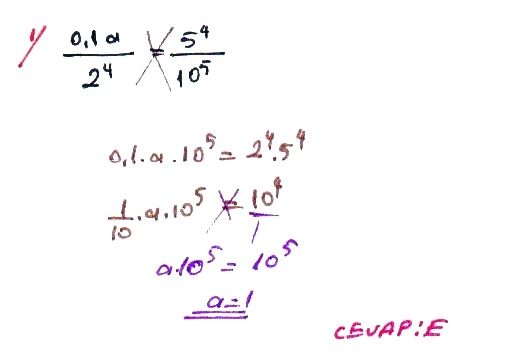 1) 0,1a / 2⁴ = 5⁴ / 10⁵
0,1.a.10⁵ = 2⁴.5⁴
1/10 .a.10⁵ = 10⁴/1
a.10⁵ = 10⁵
a=1
CEVAP:E